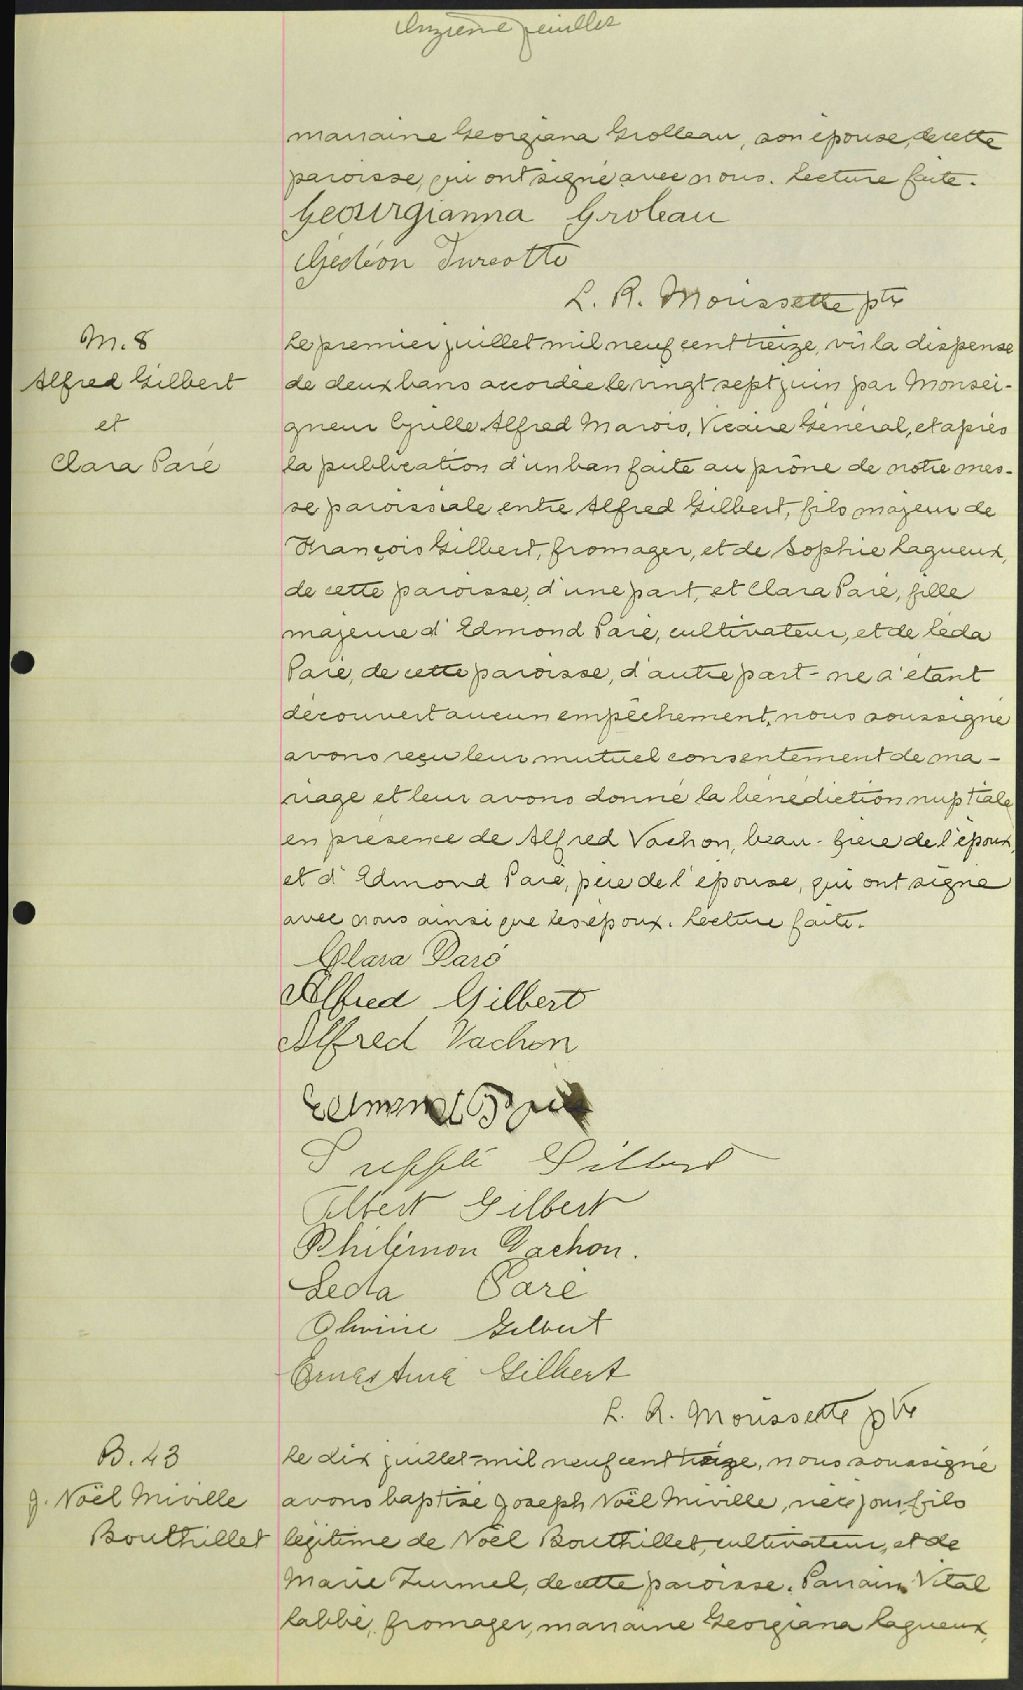 Onzième feuillet
marraine Georgiana Grolleau, son épouse, de cette
paroisse, qui ont signé avec nous. Lecture faite.
Geourgianna Groleau
Gédéon Turcotte
L. R. Morissette ptre
M. 8
Alfred Gilbert
et
Clara Paré
Le premier juillet mil neuf cent treize, vu la dispense
de deux bans accordée le vingt sept juin par Monsei-
gneur Cyrille Alfred Marois, Vicaire Général, et après
la publication d'un ban faite au prône de notre mes-
se paroissiale entre Alfred Gilbert, fils majeur de
François Gilbert, fromager, et de Sophie Lagueux,
de cette paroisse, d'une part, et Clara Paré, fille
majeure d'Edmond Paré, cultivateur, et de Léda
Paré, de cette paroisse, d'autre part - ne s'étant
découvert aucun empêchement, nous soussigné
avons reçu leur mutuel consentement de ma-
riage et leur avons donné la bénédiction nuptiale
en présence de Alfred Vachon, beau-frère de l'époux,
et d'Edmond Paré, père de l'épouse, qui ont signé
avec nous ainsi que les époux. Lecture faite.
Clara Paré
Alfred Gilbert
Alfred Vachon
Edmond
Gilbert
Albert Gilbert
Philémon Vachon.
Leda Paré
Olivine Gilbert
Ernestine Gilbert
L. R. Morissette ptre
B. 43
J. Noël Miville
Bouthillet
Le dix juillet mil neuf cent treize, nous soussigné
avons baptisé Joseph Noël Miville, né ce jour, fils
légitime de Noël Bouthillet, cultivateur, et de
Marie Turmel, de cette paroisse. Parrain Vital
Labbé, fromager, marraine Georgiana Lagueux,